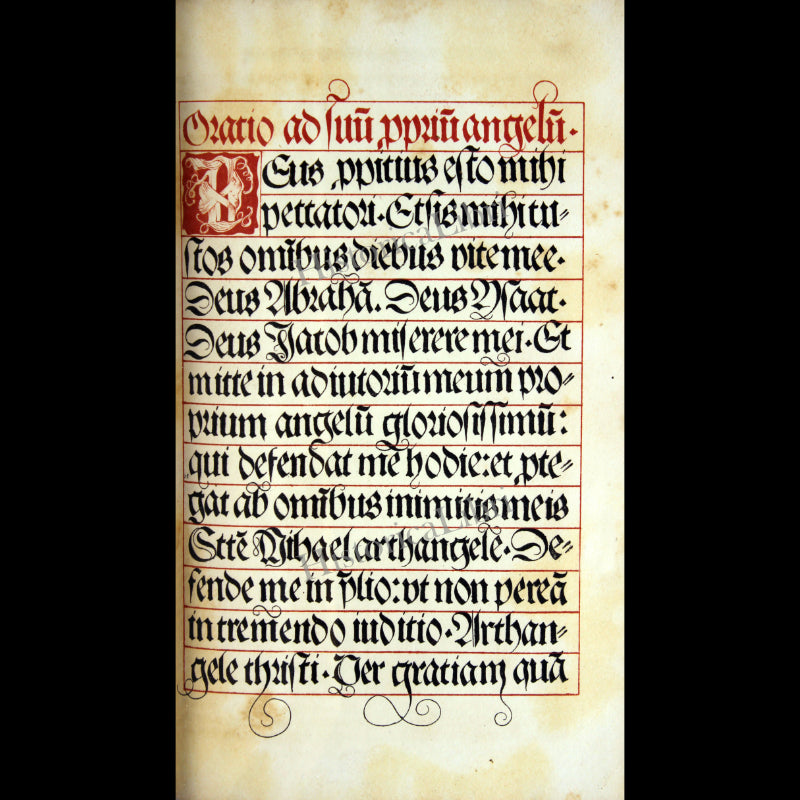 Oratio ad suū ꝓpriū angelū.
DEus ꝓpitius esto mihi
peccatori. Et sis mihi cu-
stos om̄ibus diebus vite mee.
Deus Abrahā. Deus Ysaac.
Deus Jacob miserere mei. Et
mitte in adiutoriū meum pro-
prium angelū gloriosissimū:
qui defendat me hodie: et ꝓte-
gat ab om̄ibus inimicis meis
Scte̅ Mihael archangele. De-
fende me in p̄lio: vt non pereā
in tremendo iudicio. Archan-
gele christi. Per gratiam quā
HistoricaLibri
HistoricaLibri